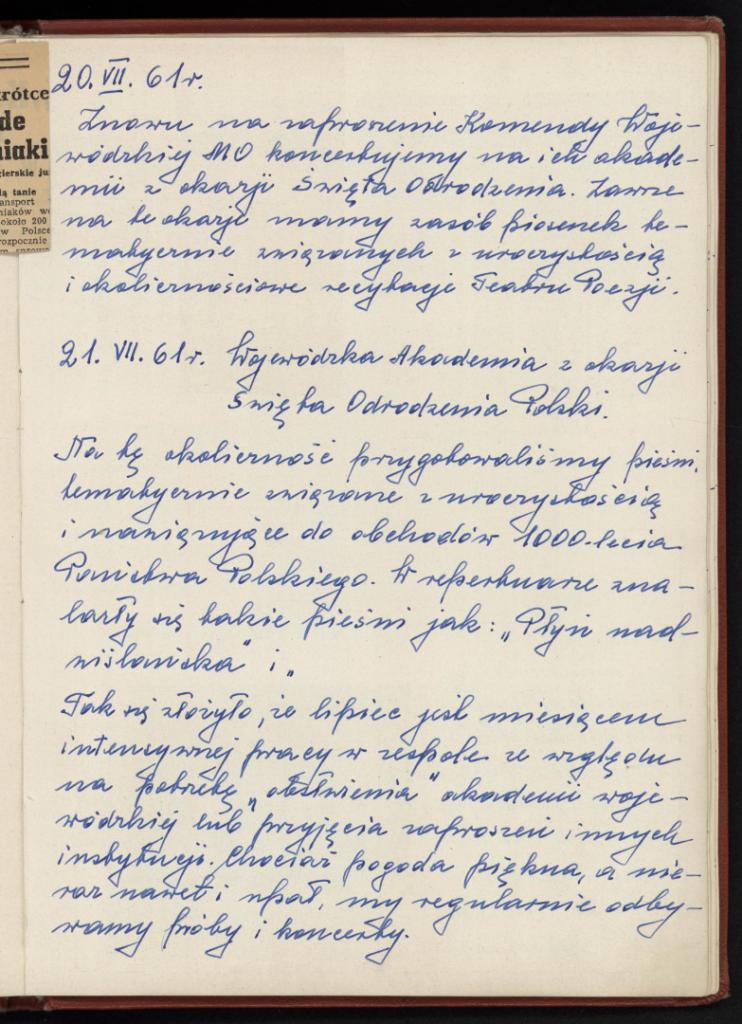 rótce
de
niaki
ierskie ju
ią tanie
ansport
niaków we
około 200
w Polsce
rozpocznie
20. VII. 61 r.
Znowu na zaproszenie Komendy Woje-
wódzkiej MO koncertujemy na ich akade-
mii z okazji Święta Odrodzenia. Zawsze
na te okazje mamy zasób piosenek te-
matycznie związanych z uroczystością
i okolicznościowe recytacje Teatru Poezji.
21. VII. 61 r. Wojewódzka Akademia z okazji
Święta Odrodzenia Polski.
Na tę okoliczność przygotowaliśmy pieśni
tematycznie związane z uroczystością
i nawiązujące do obchodów 1000-lecia
Państwa Polskiego. W repertuarze zna-
lazły się takie pieśni jak: „Płyń nad-
wiślańska" i „
Tak się złożyło, że lipiec jest miesiącem
intensywnej pracy w zespole ze względu
na potrzebę „obsłużenia" akademii woje-
wódzkiej lub przyjęcia zaproszeń innych
instytucji. Chociaż pogoda piękna, a nie-
raz nawet i upał, my regularnie odby-
wamy próby i koncerty.